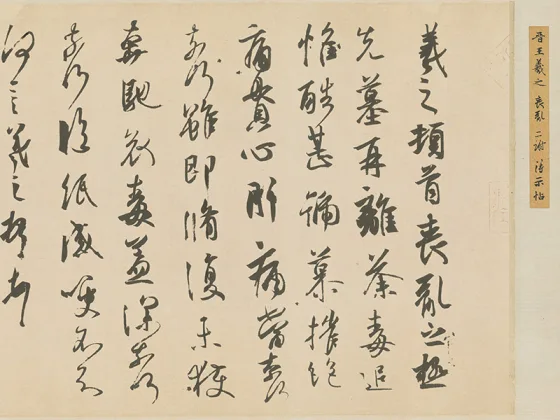 晉王羲之 喪亂 二謝 得示帖
羲之頓首喪亂之極
先墓再離荼毒追
惟酷甚號慕摧絕
痛貫心肝痛當奈何
奈何雖即脩復未獲
奔馳哀毒益深奈何
奈何臨紙感哽不知
何言羲之頓首頓首